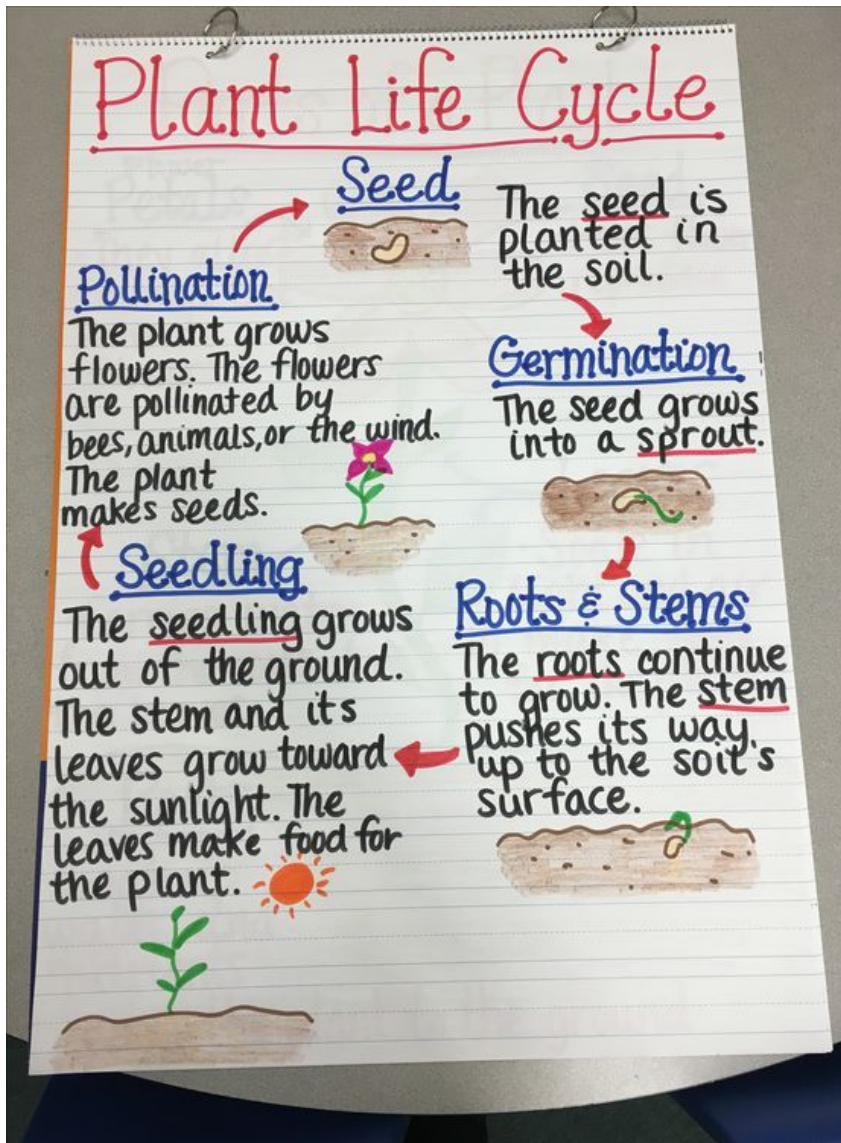 Plant Life Cycle
Seed
The seed is
planted in
the soil.
Germination
The seed grows
into a sprout.
Roots & Stems
The roots continue
to grow. The stem
pushes its way
up to the soil's
surface.
Seedling
The seedling grows
out of the ground.
The stem and its
leaves grow toward
the sunlight. The
leaves make food for
the plant.
Pollination
The plant grows
flowers. The flowers
are pollinated by
bees, animals, or the wind.
The plant
makes seeds.